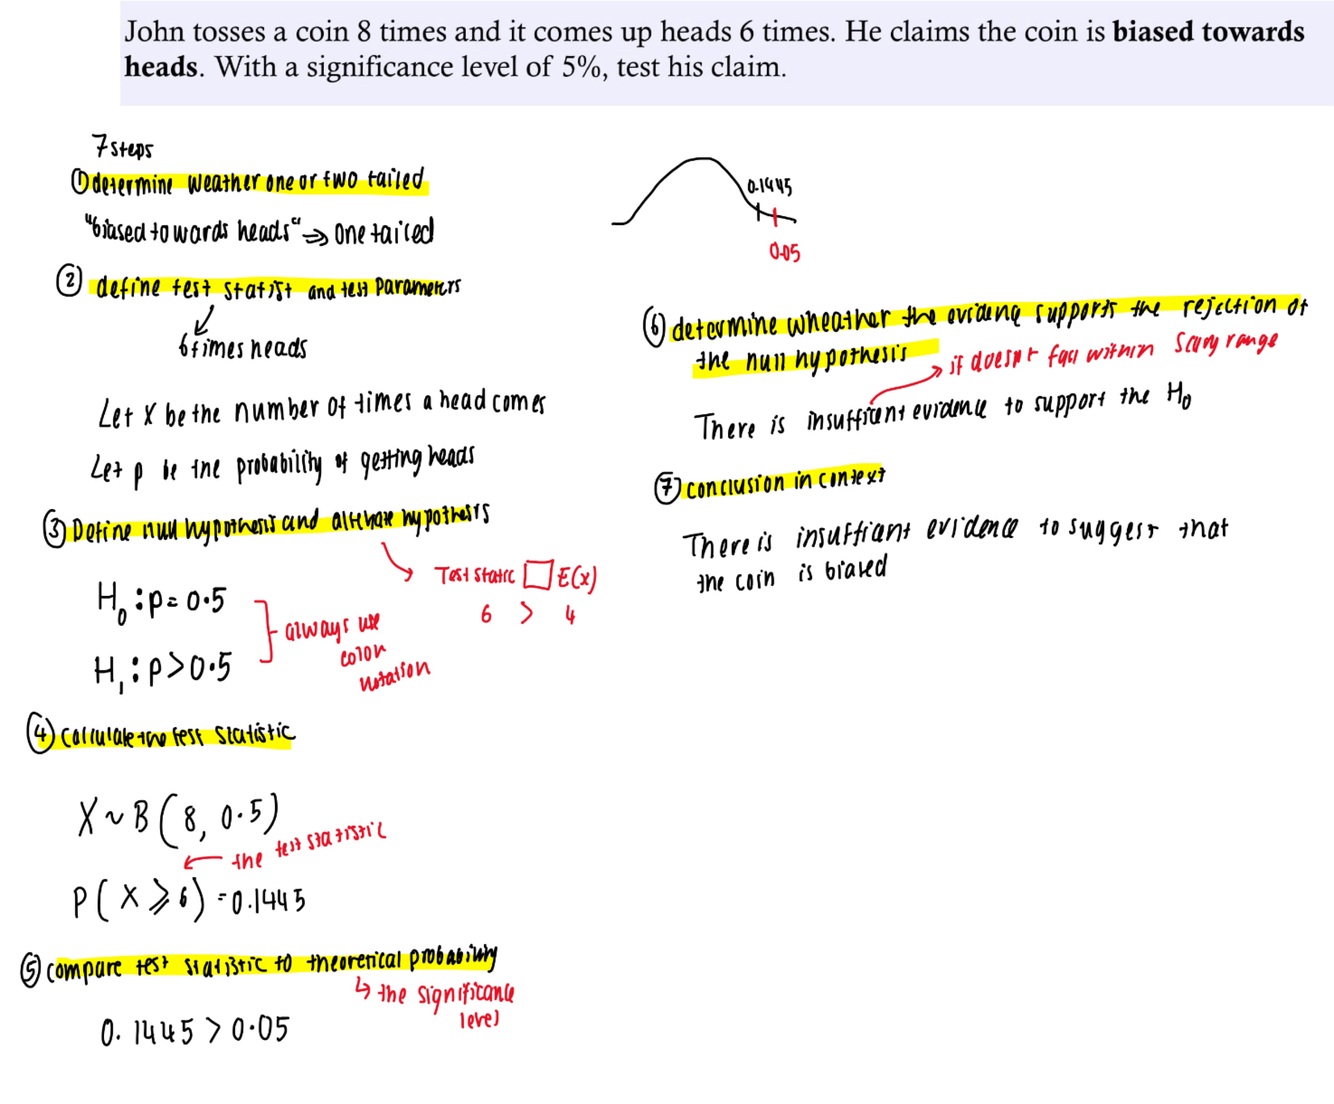 John tosses a coin 8 times and it comes up heads 6 times. He claims the coin is biased towards
heads. With a significance level of 5%, test his claim.
7 steps
① determine weather one or two tailed
"biased towards heads" ⇒ one tailed
② define test statist and test parameters
6 times heads
Let X be the number of times a head comes
Let p be the probability of getting heads
③ Define null hypothesis and alternate hypothesis
Test static □ E(x)
6 > 4
H₀ : p = 0.5
H₁ : p > 0.5
always use
colon
notation
④ calculate the test statistic
X ~ B(8, 0.5)
the test statistic
P(X ⩾ 6) = 0.1445
⑤ compare test statistic to theoretical probability
↳ the significance
level
0.1445 > 0.05
0.1445
0.05
⑥ determine wheather the evidence supports the rejection of
the null hypothesis
if doesn't fall within scary range
There is insufficient evidence to support the H₀
⑦ conclusion in context
There is insuffiant evidence to suggest that
the coin is biased